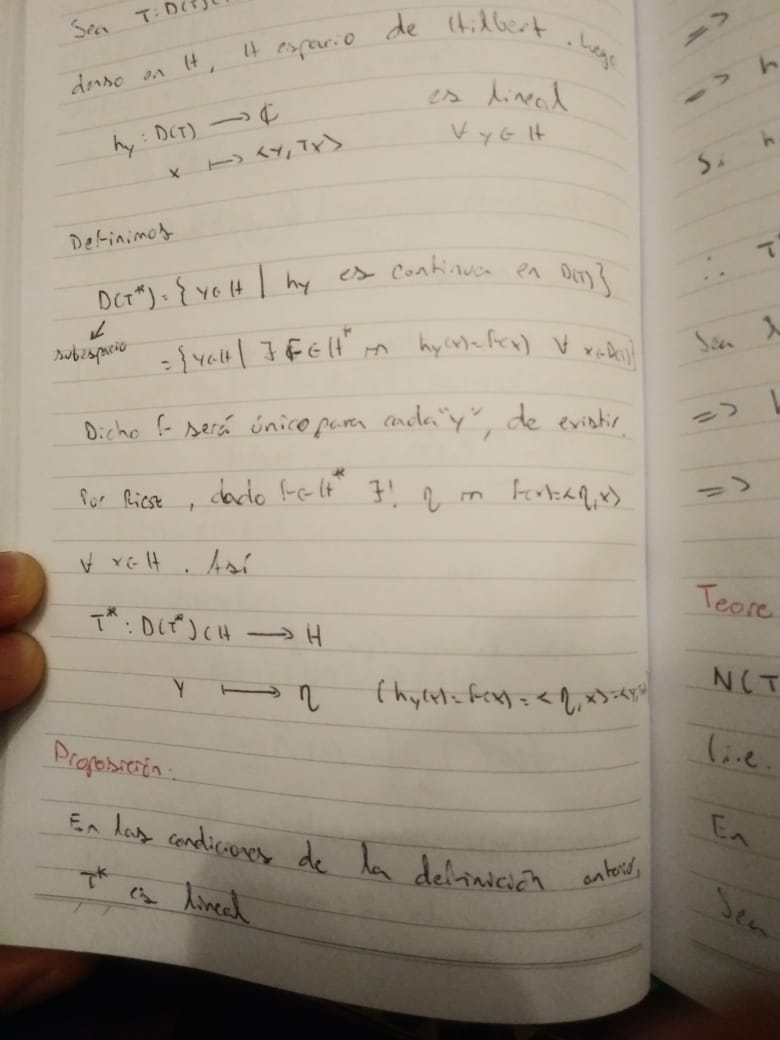 Sea T: D(T)
denso en H, H espacio de Hilbert. Luego
h_y : D(T) → ℂ es lineal
x ↦ <y, Tx> ∀ y ∈ H
Definimos
D(T*) = { y ∈ H | h_y es continua en D(T)}
subespacio = { y ∈ H | ∃ F ∈ H* m h_y(x) = F(x) ∀ x ∈ D(T)}
Dicho F será único para cada "y", de existir.
Por Riesz, dado F ∈ H* ∃! η m F(x) = <η, x>
∀ x ∈ H. Así
T* : D(T*) ⊂ H → H
y ↦ η (h_y(x) = F(x) = <η, x> = <y, Tx>
Proposición:
En las condiciones de la definición anterior,
T* es lineal
=>
=> h
Si h
∴ T
Sea λ
=>
=>
Teore
N(T
(i.e.
En
Sea